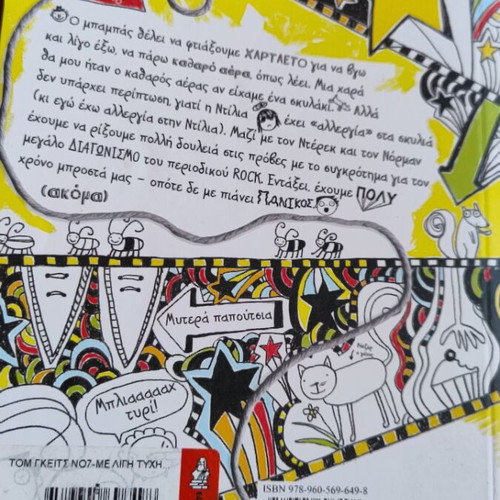 Ο μπαμπάς θέλει να φτιάξουμε ΧΑΡΤΑΕΤΟ για να βγω
και λίγο έξω, να πάρω καθαρό αέρα, όπως λέει. Μια χαρά
θα μου ήταν ο καθαρός αέρας αν είχαμε ένα σκυλάκι. Αλλά
δεν υπάρχει περίπτωση, γιατί η Ντίλια έχει «αλλεργία» στα σκυλιά
(κι εγώ έχω αλλεργία στην Ντίλια). Μαζί με τον Ντέρεκ και τον Νόρμαν
έχουμε να ρίξουμε πολλή δουλειά στις πρόβες με το συγκρότημα για τον
μεγάλο ΔΙΑΓΩΝΙΣΜΟ του περιοδικού ROCK. Εντάξει, έχουμε ΠΟΛΥ
χρόνο μπροστά μας – οπότε δε με πιάνει ΠΑΝΙΚΟΣ
(ακόμα)
Μυτερά παπούτσια
Μπλιαααααχ
τυρί!
ΤΟΜ ΓΚΕΙΤΣ ΝΟ7-ΜΕ ΛΙΓΗ ΤΥΧΗ
ISBN 978-960-569-649-8